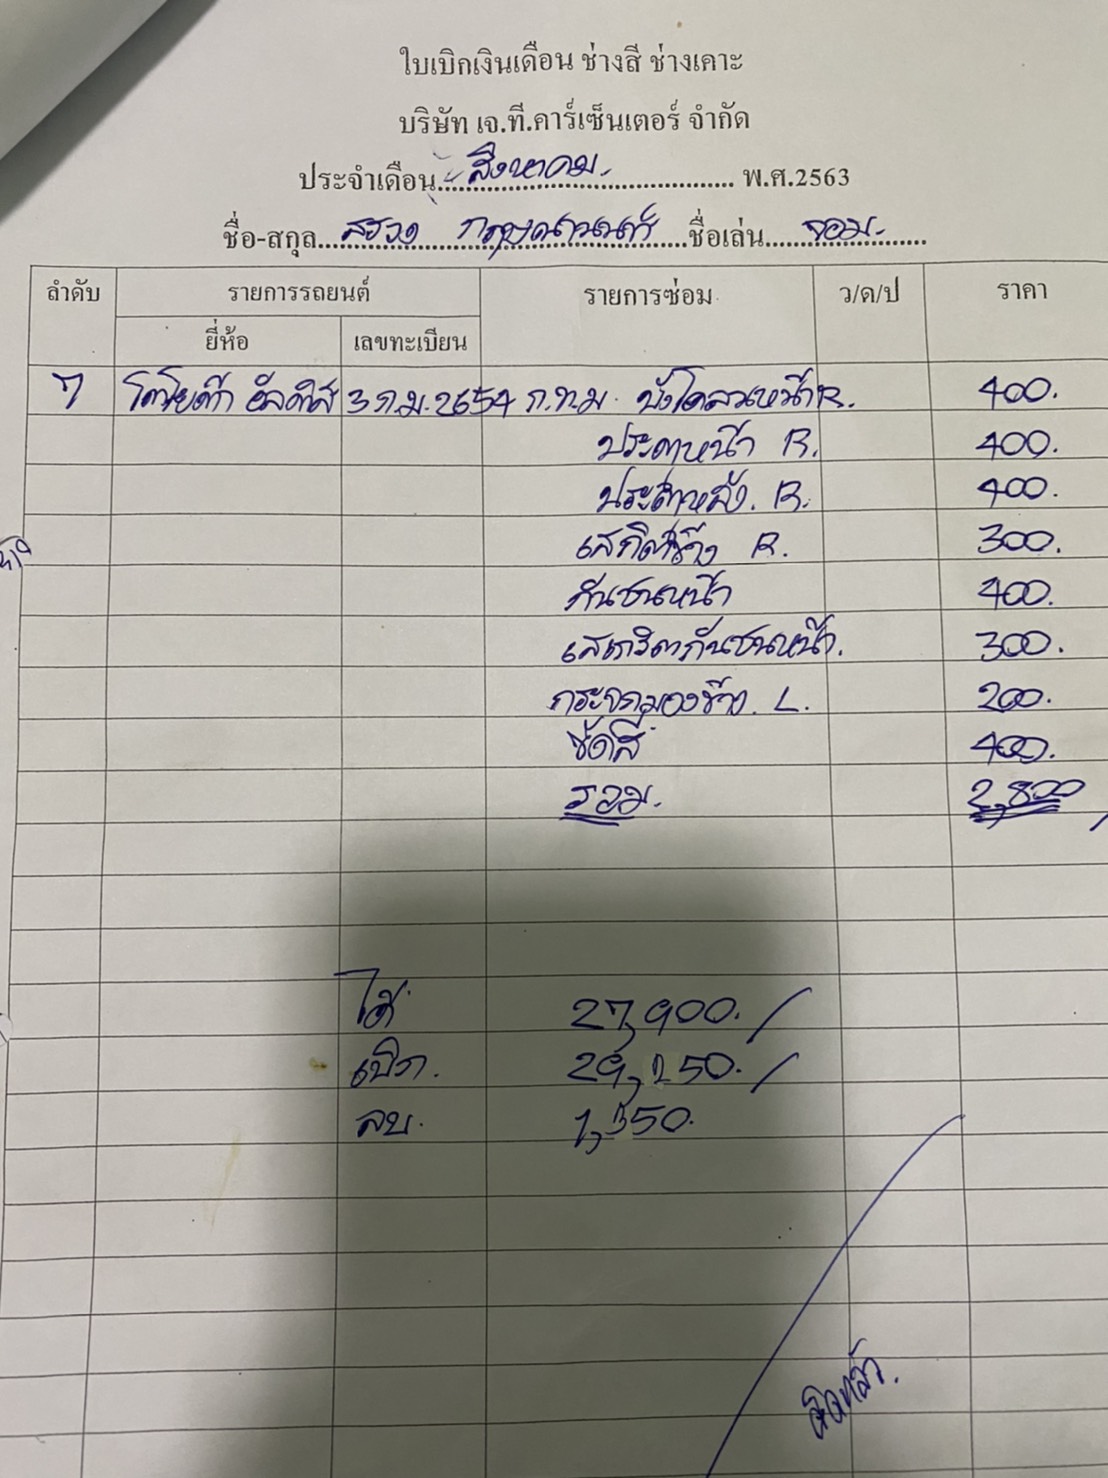 ใบเบิกเงินเดือน ช่างสี ช่างเคาะ
บริษัท เจ.ที.คาร์เซ็นเตอร์ จำกัด
ประจำเดือน สิงหาคม. พ.ศ.2563
ชื่อ-สกุล ชื่อเล่น จอม.
ลำดับ รายการรถยนต์ รายการซ่อม ว/ด/ป ราคา
ยี่ห้อ เลขทะเบียน
7 โตโยต้า อัลติส 3 ก.ม. 2654 ก.ท.ม. บังโคลนหน้า R. 400.
ประตูหน้า R. 400.
ประตูหลัง. R. 400.
สเกิตข้าง R. 300.
กันชนหน้า 400.
กันชนหน้า. 300.
กระจกมองข้าง. L. 200.
ขัดสี 400.
รวม. 2,800
ได้ 27,900.
เบิก. 29,250.
ลบ. 1,350.